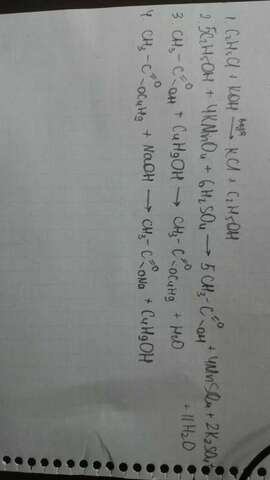 1. C₂H₅Cl + KOH →(вода) KCl + C₂H₅OH
2. 5C₂H₅OH + 4KMnO₄ + 6H₂SO₄ → 5CH₃-C(=O)-OH + 4MnSO₄ + 2K₂SO₄
+ 11H₂O
3. CH₃-C(=O)-OH + C₄H₉OH → CH₃-C(=O)-OC₄H₉ + H₂O
4. CH₃-C(=O)-OC₄H₉ + NaOH → CH₃-C(=O)-ONa + C₄H₉OH